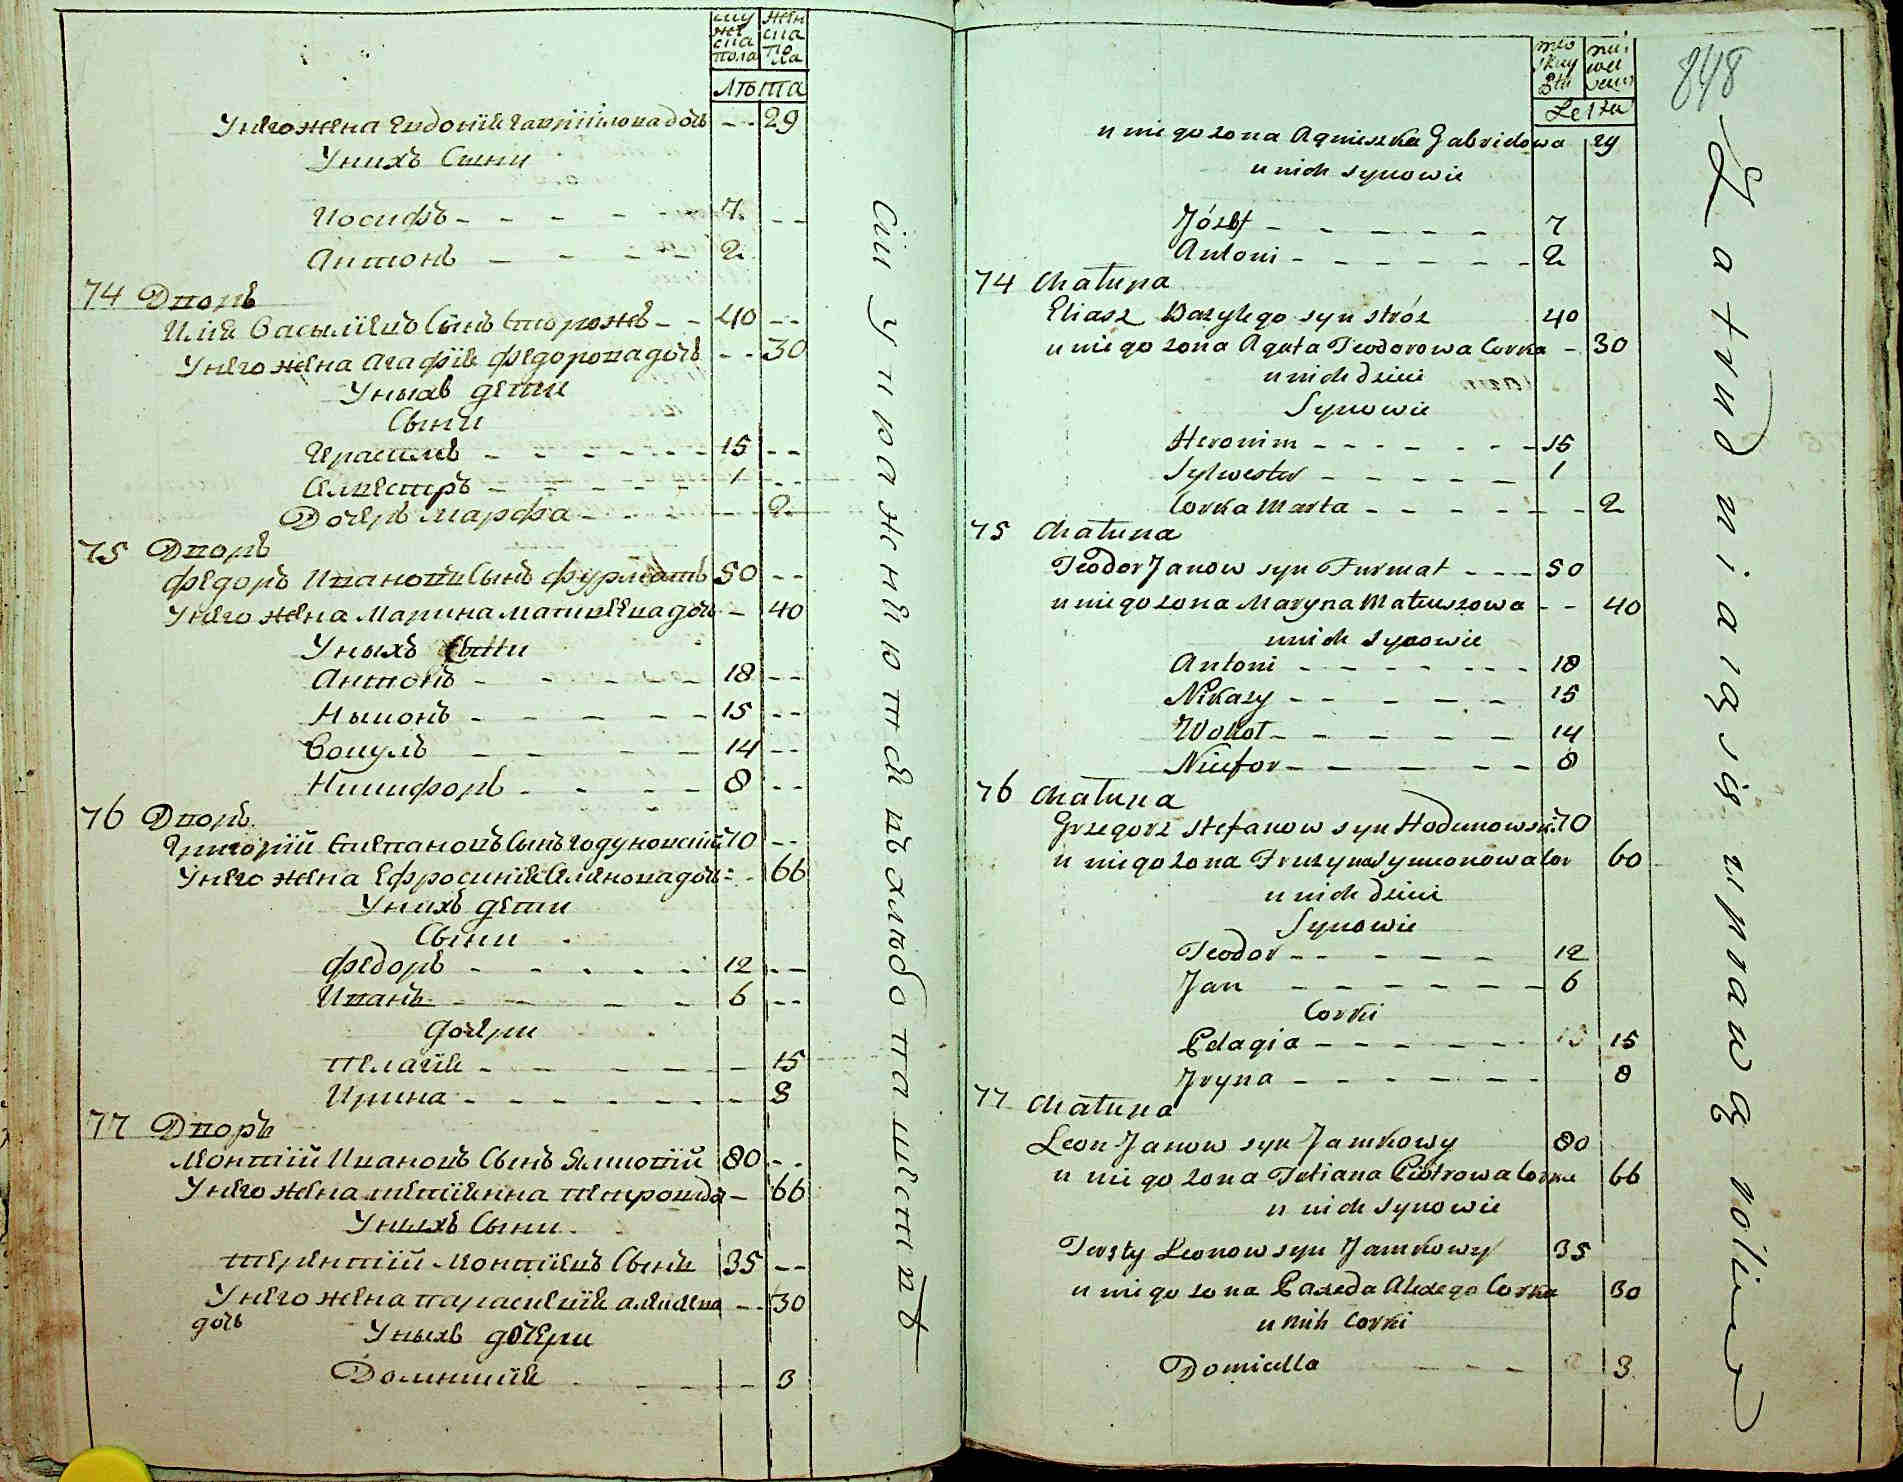 мужеска пола
женска пола
Лѣта
У него жена Евдокія Гавріилова дочь -- 29
У нихъ Сыни
Иосифъ 7 --
Антонъ 2
74 Дворъ
Илія Васыліевъ Сынъ Сторожъ 40 --
У него жена Агафія Федорова дочь -- 30
У ныхъ дети
Сыни
Ярасимъ 15 --
Силвестръ 1 --
Дочерь Марфа -- 2
75 Дворъ
Федоръ Ивановъ Сынъ Фурматъ 50 --
У него жена Марина Матвеева дочь -- 40
У ныхъ Сыни
Антонъ 18 --
Ныконъ 15 --
Вовулъ 14 --
Никифоръ 8 --
76 Дворъ
Григорій Степановъ Сынъ Годуновскій 70 --
У него жена Ефросинія Семенова дочь -- 66
У нихъ дети
Сыни
Федоръ 12 --
Иванъ 6 --
дочери
Пелагія -- 15
Ирина -- 8
77 Дворъ
Леонтій Ивановъ Сынъ 80 --
У него жена Петрова -- 66
У ныхъ Сыни
Терентій Леонтіевъ Сынъ 35 --
У него жена Параскевія -- 30
дочь
У ныхъ дочери
Домникія -- 3
Сіи упражняются въ хлѣбопашествѣ
848
Letta
u niego zona Agnieszka Gabrielowa 29
u nich synowie
Józef 7
Antoni 2
74 Chałupa
Eliasz Bazylego syn stróz 40
u niego zona Agata Teodorowa Corka - 30
u nich dzieci
Synowie
Heronim 15
Sylwester 1
Corka Marta - 2
75 Chałupa
Teodor Janow syn Furmat 50
u niego zona Maryna Mateuszowa -- 40
u nich synowie
Antoni 18
Nikazy 15
Wokoł 14
Nicefor 8
76 Chałupa
Grzegorz Stefanow syn Hodunowski 70
u niego zona Fruzyna Symeonowa Cor 60
u nich dzieci
Synowie
Teodor 12
Jan 6
Corki
Pelagia 15
Jryna 8
77 Chałupa
Leon Janow syn Jamkowy 80
u niego zona Tetiana Piotrowa Corka 66
u nich synowie
Leonow syn Jamkowy 35
u niego zona Alexego Corka 30
u nich Corki
Domicella 3
Zatrudniaią się uprawą roli